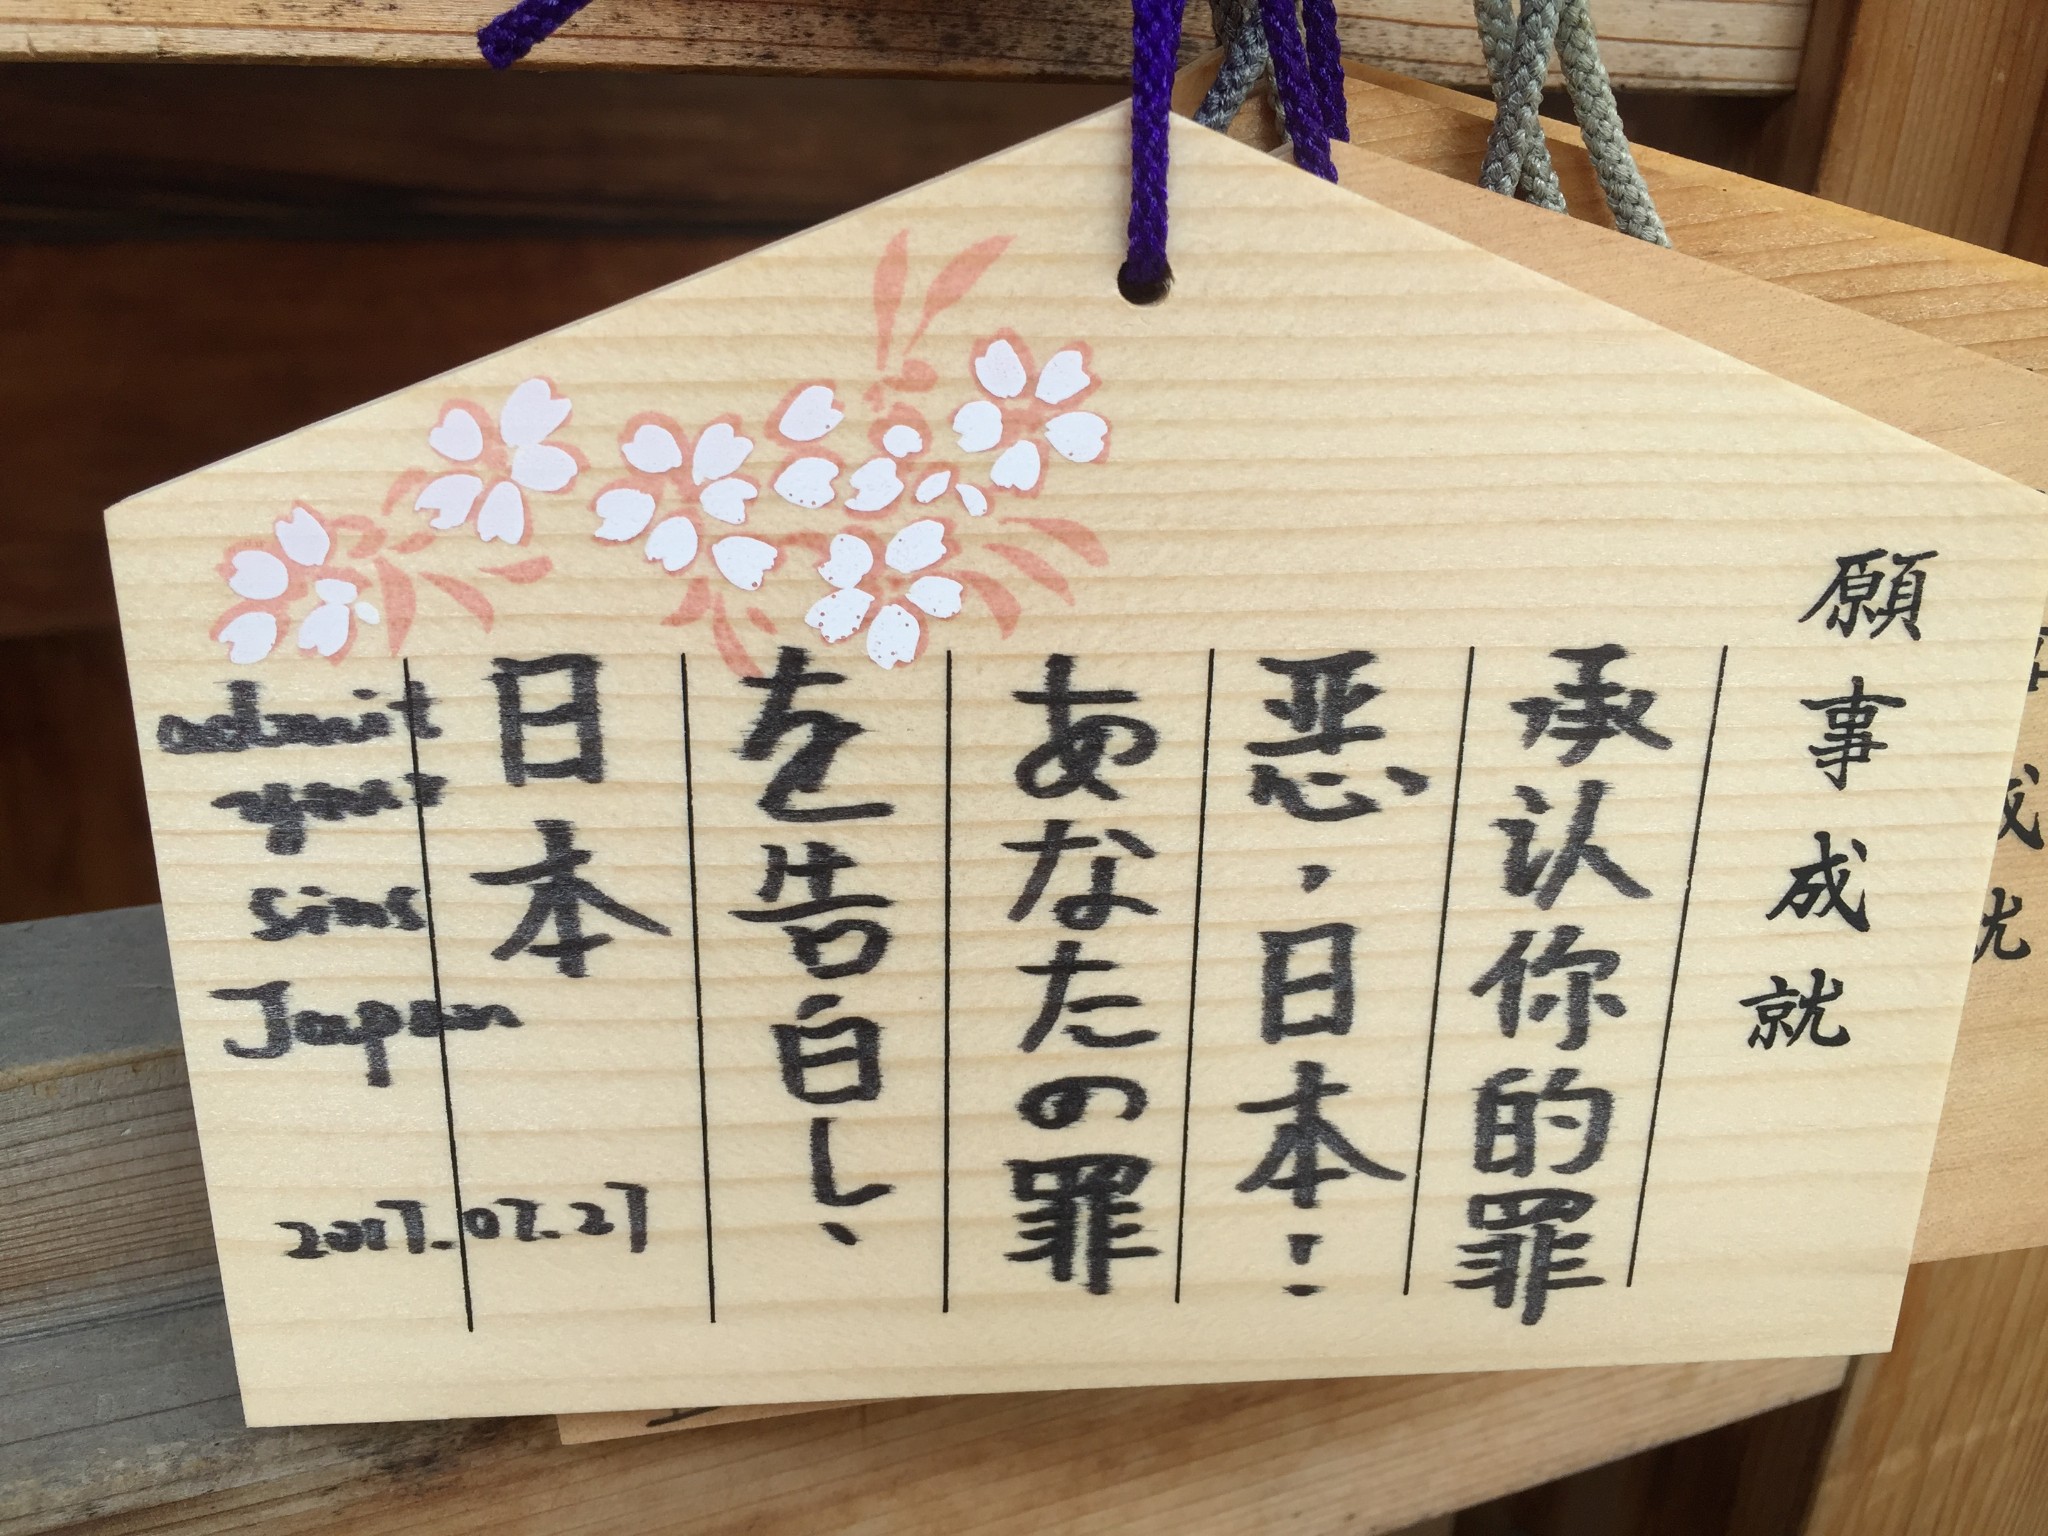 願事成就
承认你的罪
恶，日本！
あなたの罪
を告白し、
日本
admit
your
sins
Japan
2017.07.27